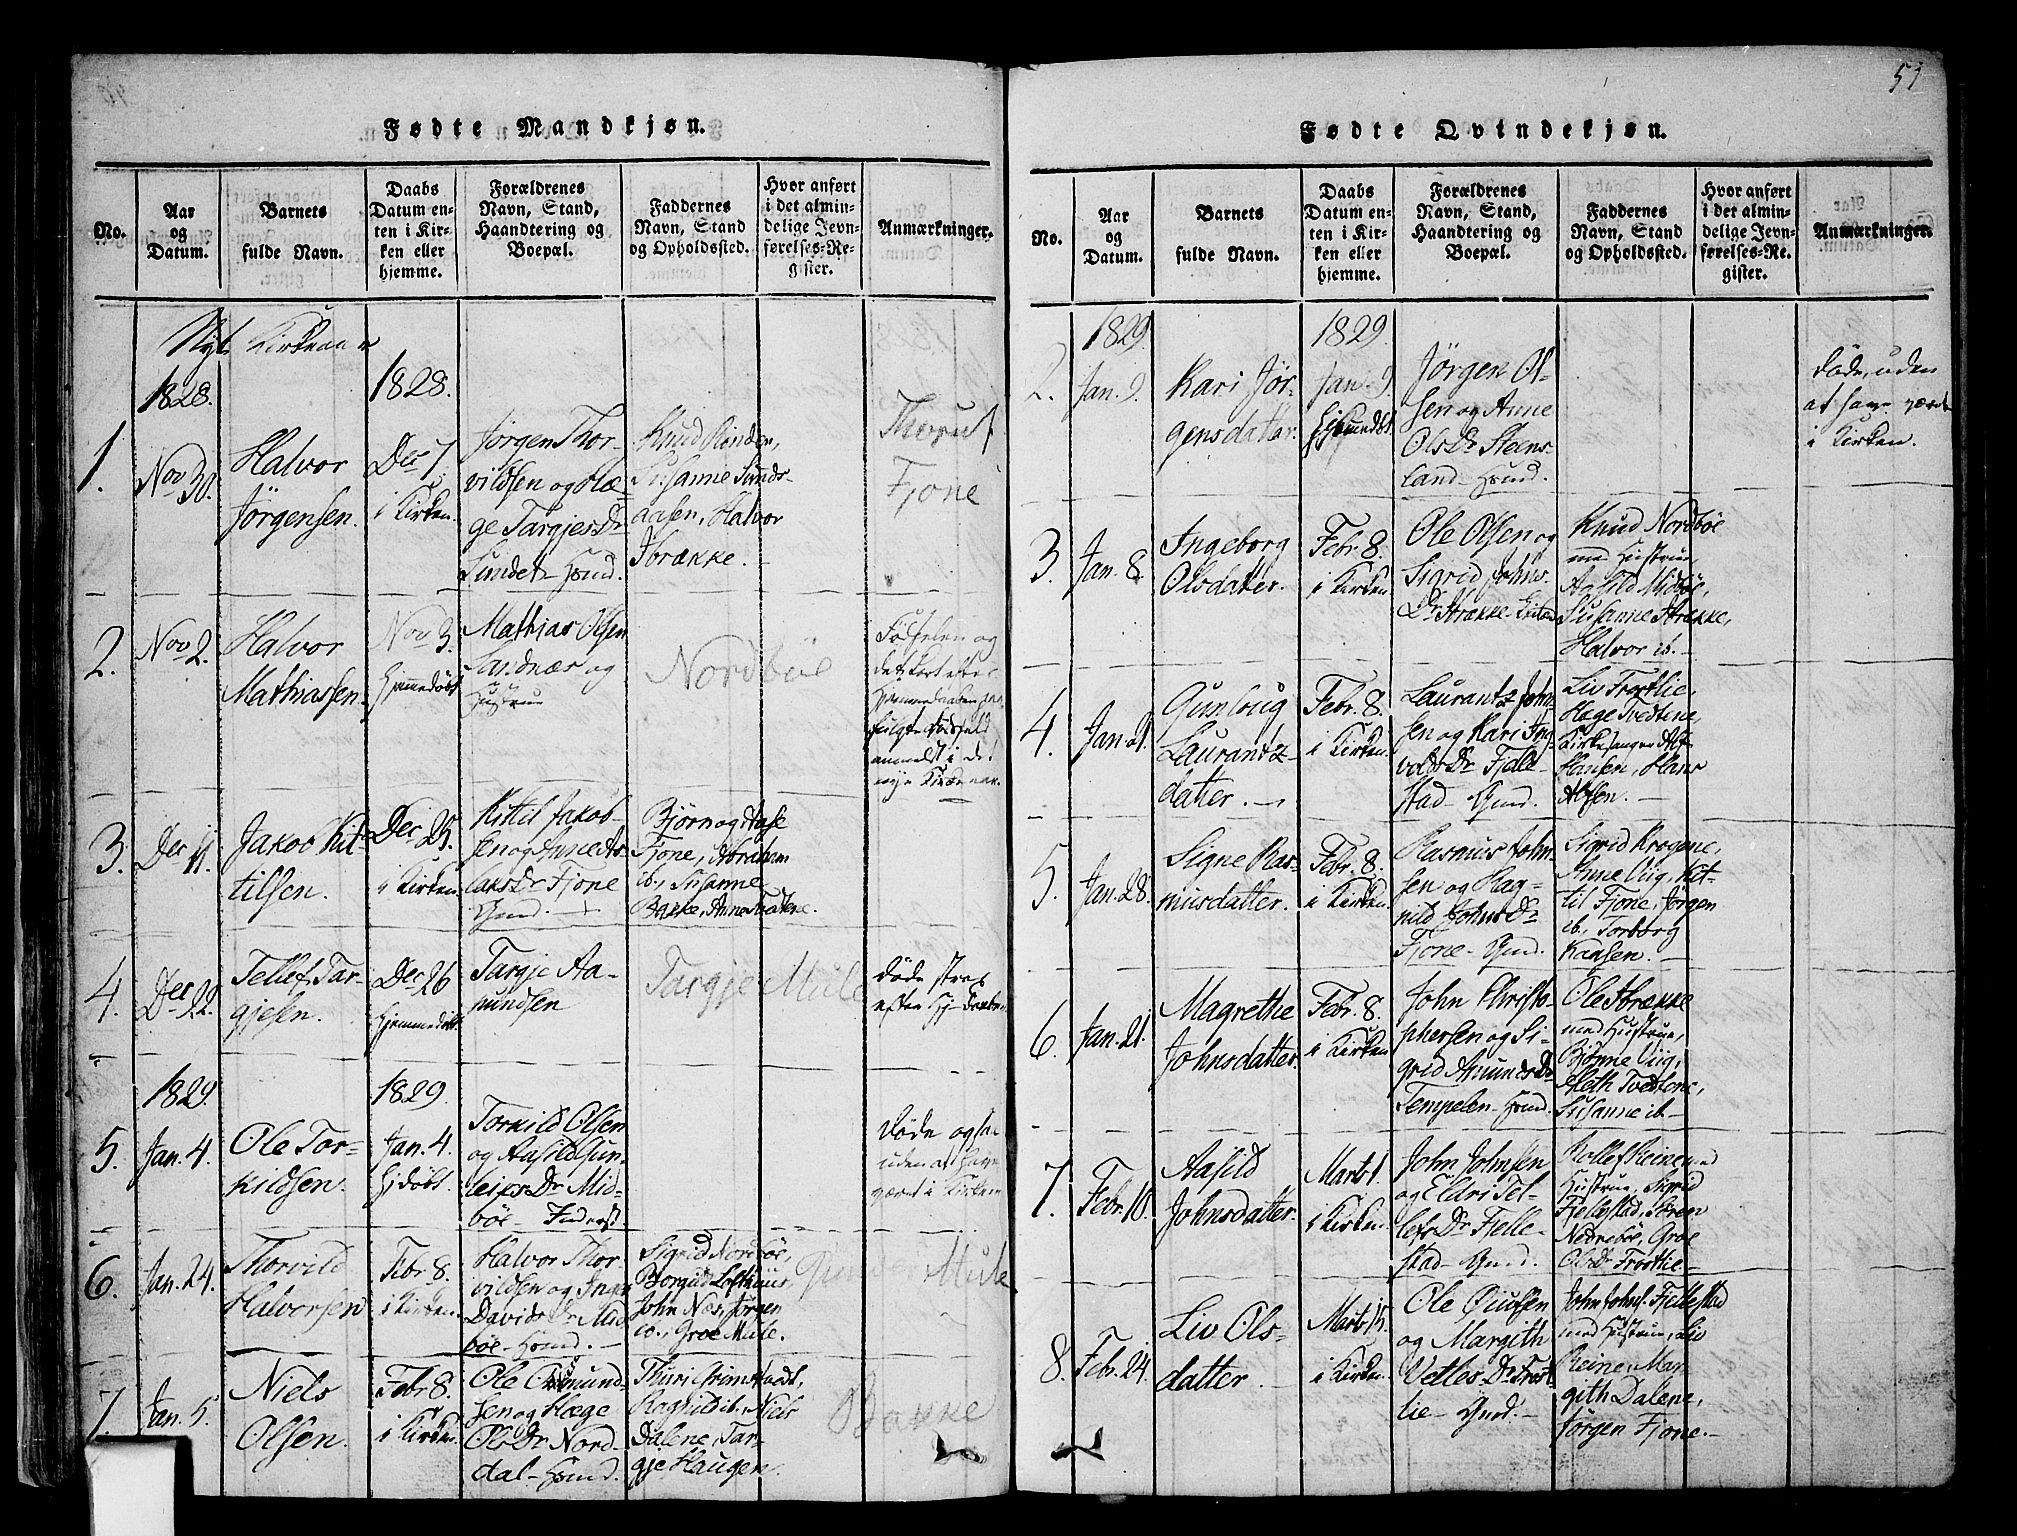 51
Fødte Mandkjøn.
No.
Aar
og
Datum.
Barnets
fulde Navn.
Daabs
Datum en-
ten i Kir-
ken eller
hjemme.
Forældrenes
Navn, Stand,
Haandtering og
Boepæl.
Faddernes
Navn, Stand
og Opholdssted.
Hvor anført
i det almin-
delige Jevn-
førelses-Re-
gister.
Anmærkninger.
Nyt Kirkeaar
1828.
1828.
1.
Nov 30.
Halvor
Jörgensen.
Dec 7.
i Kirken.
Jörgen Thor-
vildsen og Hæ-
ge TargjesDr
Sundet
Knud Rinden,
Susanne Sunds-
aasen, Halvor
Strække.
Fjone
2.
Nov 2.
Halvor
Mathiassen.
Nov 3.
Hjemmedöbt
Mathias Olsen
Sandnær og
Hustrue
Nordböe
Födselen og
3.
Dec 11.
Jakob Kit-
tilsen.
Dec 25.
i Kirken.
Kittil Jakob-
sen og Anne As-
laksDr Fjone
Björn og Aase
Fjone, Abraham
ib., Susanne
Bakke, Anne
4.
Dec 22.
Tellef Tar-
gjesen.
Dec 26
Hjemmedöbt
Targje Aa-
mundsen
Targje Mule
döde strax
efter
1829.
1829.
5.
Jan. 4.
Ole Tor-
kildsen.
Jan. 4.
Hjdöbt
Torkild Olsen
og Aasild Gun-
leiksDr Mid-
böe
döde og
uden at have
været i Kirken
6.
Jan. 24.
Thorvild
Halvorsen
Febr 8.
i Kirken.
Halvor Thor-
vildsen og Inge
DavidsDr Mid
böe
Sigrid Nordböe,
Borgild Lofthuus
John Næs, Jörgen
ib., Groe Mule.
Mule
7.
Jan. 5.
Niels
Olsen.
Febr 8.
i Kirken.
Ole Osmund-
sen og Hæge
OlsDr Nord-
dal
Thuri Grimstvedt,
Ragnild ib., Niels
Dalene, Tar-
gje Haugen.
Bakke
Fødte Qvindekjøn.
No.
Aar
og
Datum.
Barnets
fulde Navn.
Daabs
Datum en-
ten i Kir-
ken eller
hjemme.
Forældrenes
Navn, Stand,
Haandtering og
Boepæl.
Faddernes
Navn, Stand
og Opholdssted.
Hvor anført
i det almin-
delige Jevn-
førelses-Re-
gister.
Anmærkninger.
1829.
1829.
2.
Jan. 9.
Kari Jör-
gensdatter.
Jan. 9.
Hjemmedöbt
Jörgen Ol-
sen og Anne
OlsDr Steens-
land
döde, uden
at have været
i Kirken.
3.
Jan. 8.
Ingeborg
Olsdatter.
Febr. 8.
i Kirken.
Ole Olsen og
Sigrid Johns-
Dr Strække
Knud Nordböe
med Hustrue,
Aasild Midböe,
Susanne Strække,
Halvor ib.
4.
Jan. 1.
Gunloug
Laurantz-
datter.
Febr. 8.
i Kirken.
Laurantz John-
sen og Kari
Dr Fjelle-
stad
Liv Frostlie,
Hæge Tvedtene,
Kirkesanger Alf
Hansen, Hans
Alfsen.
5.
Jan. 28.
Signe Ras-
musdatter.
Febr. 8.
i Kirken.
Rasmus John-
sen og Rag-
nild JohnsDr
Fjone
Sigrid Krogene,
Anne Uig, Kit-
til Fjone, Jörgen
ib., Torborg
Kaasen.
6.
Jan. 21.
Magrethe
Johnsdatter.
Febr. 8.
i Kirken
John Christo-
phersen og Si-
grid AmundsDr
Tempelen
Ole Strække
med Hustrue,
Björne Uig,
Aleth Tvedtene,
Susanne ib.
7.
Febr. 10.
Aasild
Johnsdatter.
Marts 1.
i Kirken.
John Johnsen
og Eldri Tel-
lefsDr Fjelle-
stad
Rollef Reine med
Hustrue, Sigrid
Fjellestad, Sören
Nedreböe, Groe
OlsDr Frostlie.
8.
Febr. 24.
Liv Ols-
datter.
Marts 15.
i Kirken.
Ole
og Margith
VetlesDr Frost-
lie
John Johns. Fjellestad
med Hustrue, Liv
Reine, Mar-
gith Dalene,
Jörgen Fjone.